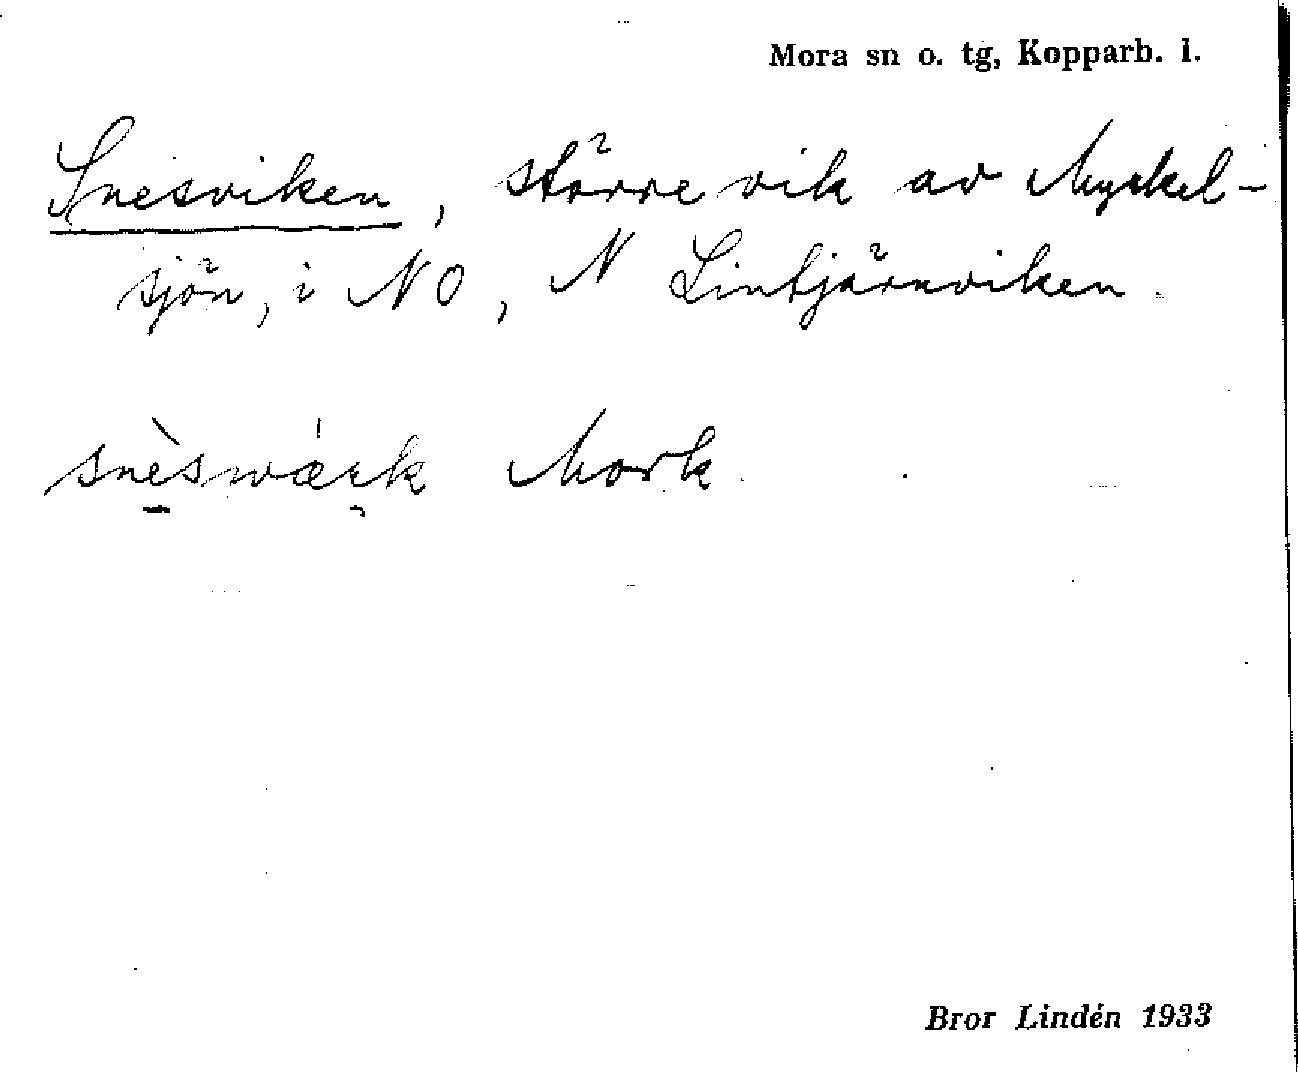 Mora sn o. tg, Kopparb. l.
Snesviken, större vik av Myckel-
sjön, i NO, N Lintjärnviken.
snèswák Mork
Bror Lindén 1933